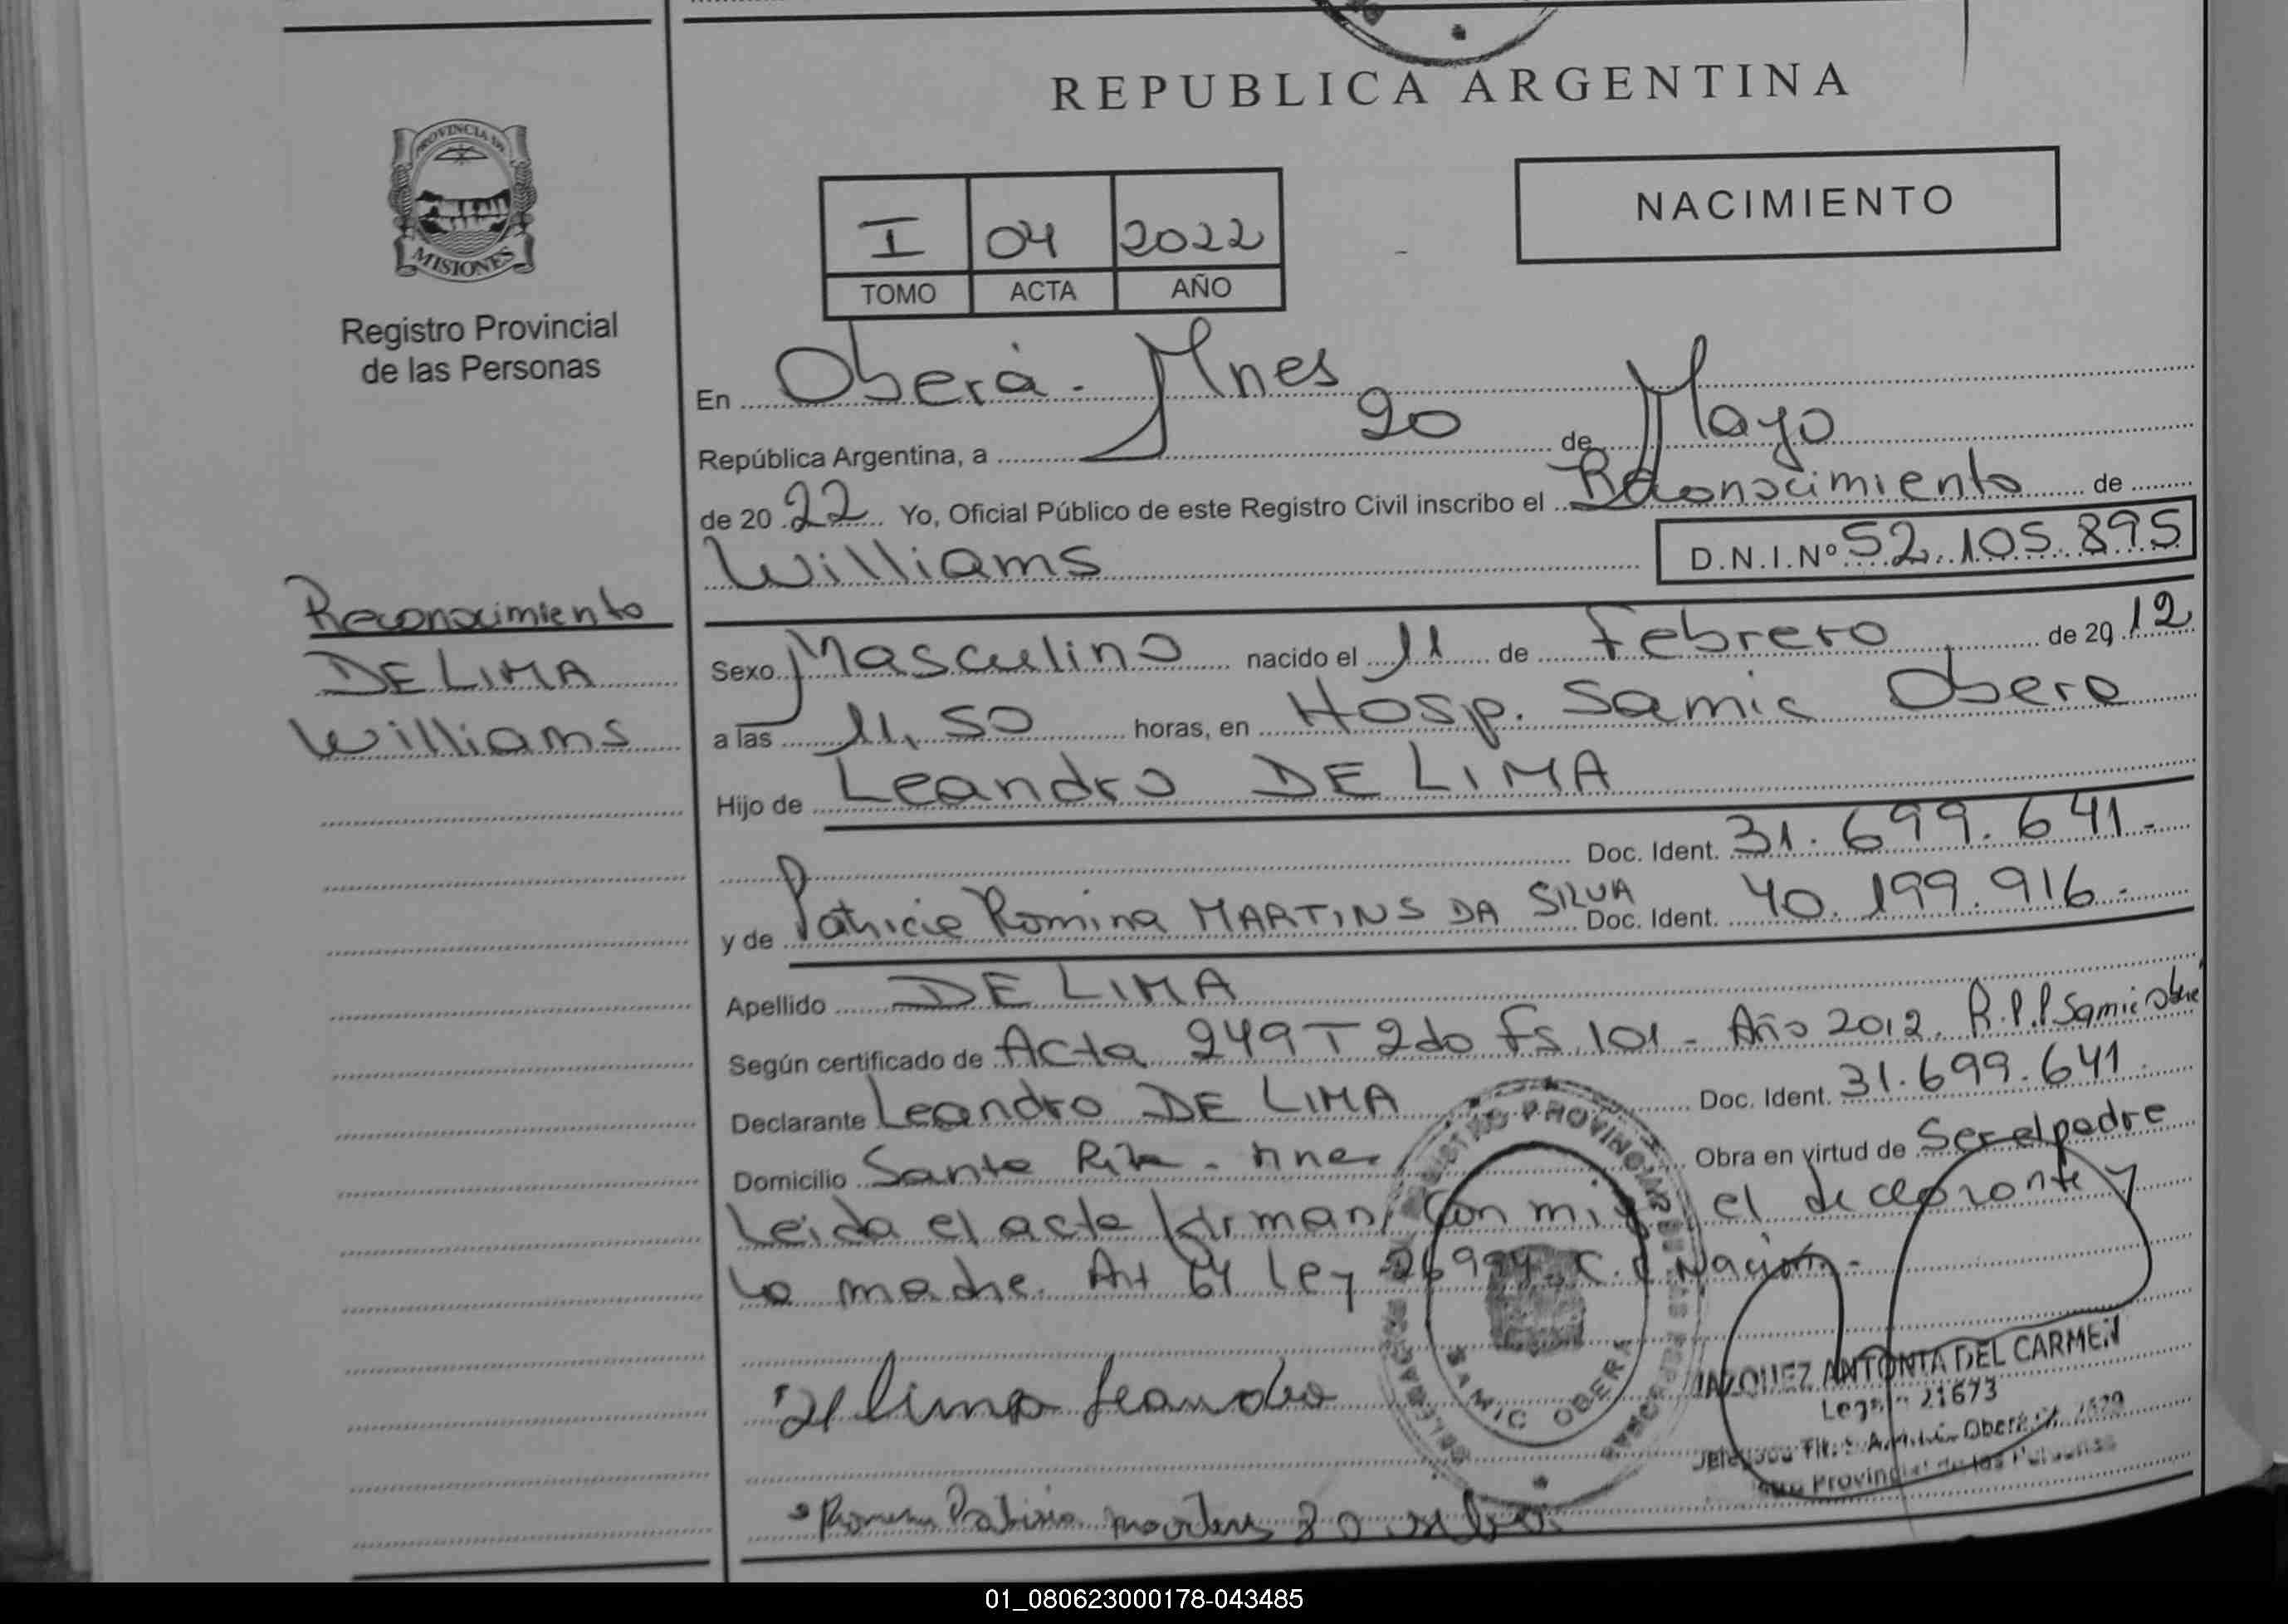 REPUBLICA ARGENTINA
PROVINCIA DE
MISIONES
Registro Provincial
de las Personas
NACIMIENTO
I 04 2022
TOMO ACTA AÑO
En Oberá - Mnes
República Argentina, a 20 de Mayo
de 2022 Yo, Oficial Público de este Registro Civil inscribo el Reconocimiento de
Williams D.N.I.Nº 52.105.895
Reconocimiento
DE LIMA
Williams
Sexo Masculino nacido el 11 de Febrero de 2012
a las 11,50 horas, en Hosp. Samic Obera
Hijo de Leandro DE LIMA
Doc. Ident. 31.699.641.-
y de Patricia Romina MARTINS DA SILVA Doc. Ident. 40.199.916.-
Apellido DE LIMA
Según certificado de Acta 249 T 2do Fs 101 - Año 2012. R.P.P Samic Obera
Declarante Leandro DE LIMA Doc. Ident. 31.699.641.
Domicilio Santa Rita - Mnes Obra en virtud de Ser el padre
Leida el acta firman con migo el declarante y
la madre. Art 64 Ley 26994 C.C Nación.-
REGISTRO PROVINCIAL DE LAS PERSONAS
SAMIC OBERA
De lima Leandro
VAZQUEZ ANTONIA DEL CARMEN
Legajo 21673
Provincial de las Personas
Romina Patricia
01_080623000178-043485